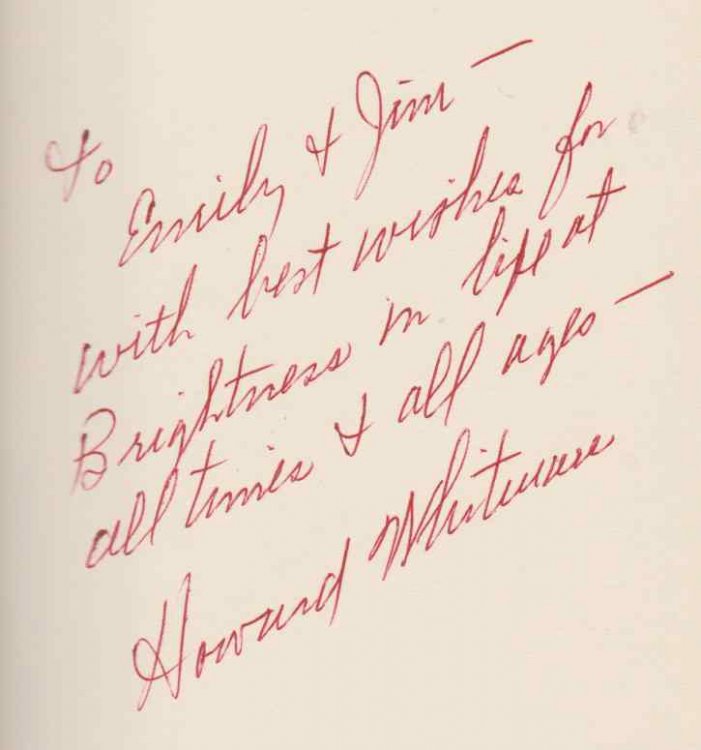 To
Emily & Jim —
with best wishes for
Brightness in life at
all times & all ages —
Howard Whitman